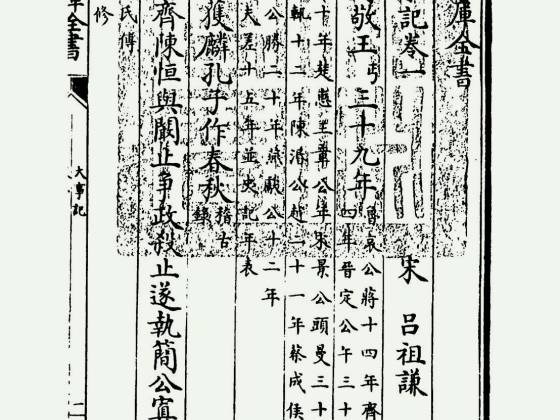 庫全書
記卷一
宋 呂祖謙
敬王丐三十九年
魯哀公蔣十四年齊
四年晉定公午三十
十年楚惠王章八年宋景公頭曼三十
執十二年陳湣公越二十一年蔡成侯
公勝二十年燕獻公十二年
夫差十五年並史記年表
獲麟孔子作春秋
稽古
錄
齊陳恒與闞止爭政殺止遂執簡公寘
氏傳
修
全書
大事記
二